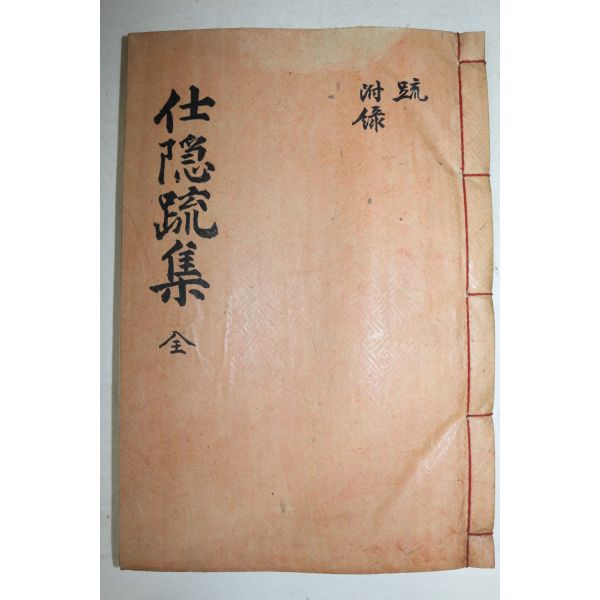 疏
附錄
仕隱疏集
全